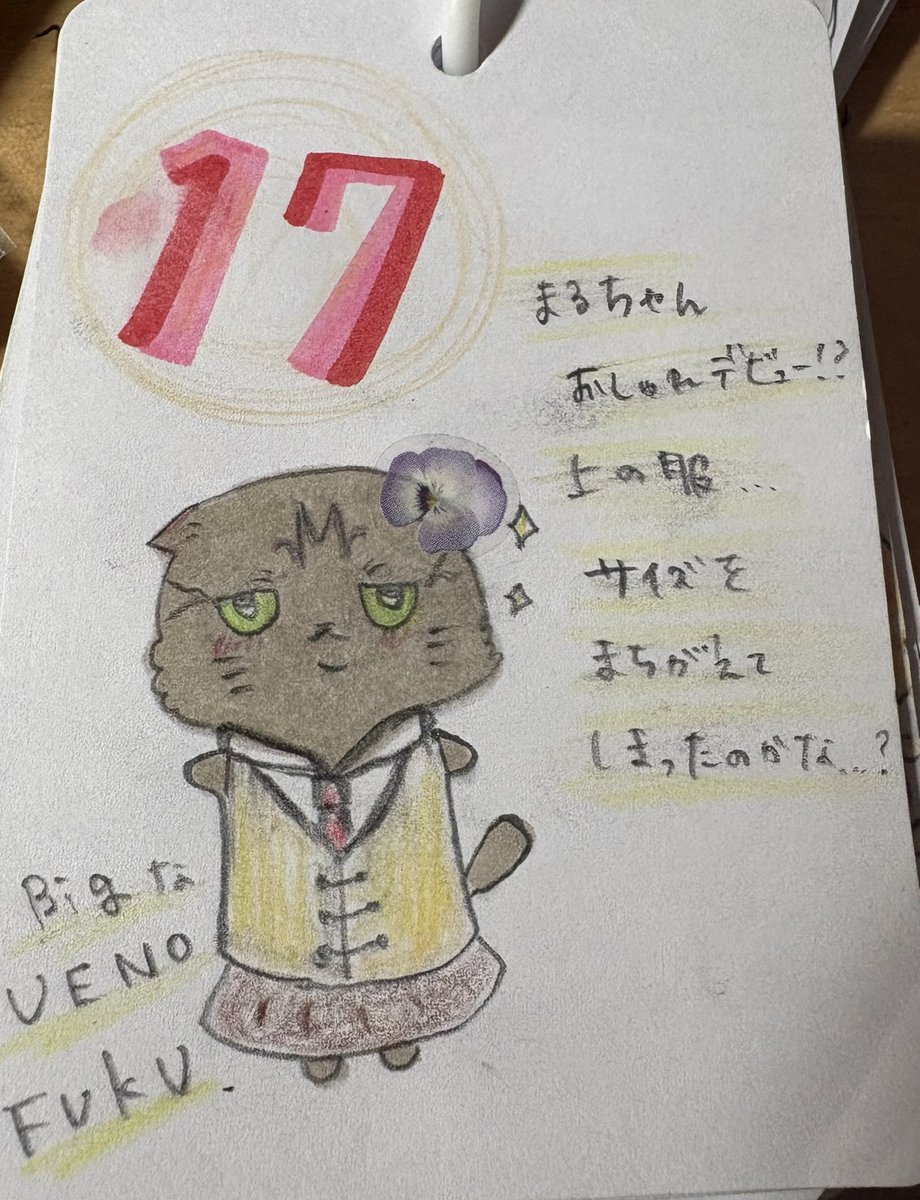 17
まるちゃん
おしゃれデビュー!?
上の服...
サイズを
まちがえて
しまったのかな...?
Bigな
UENO
FUKU.